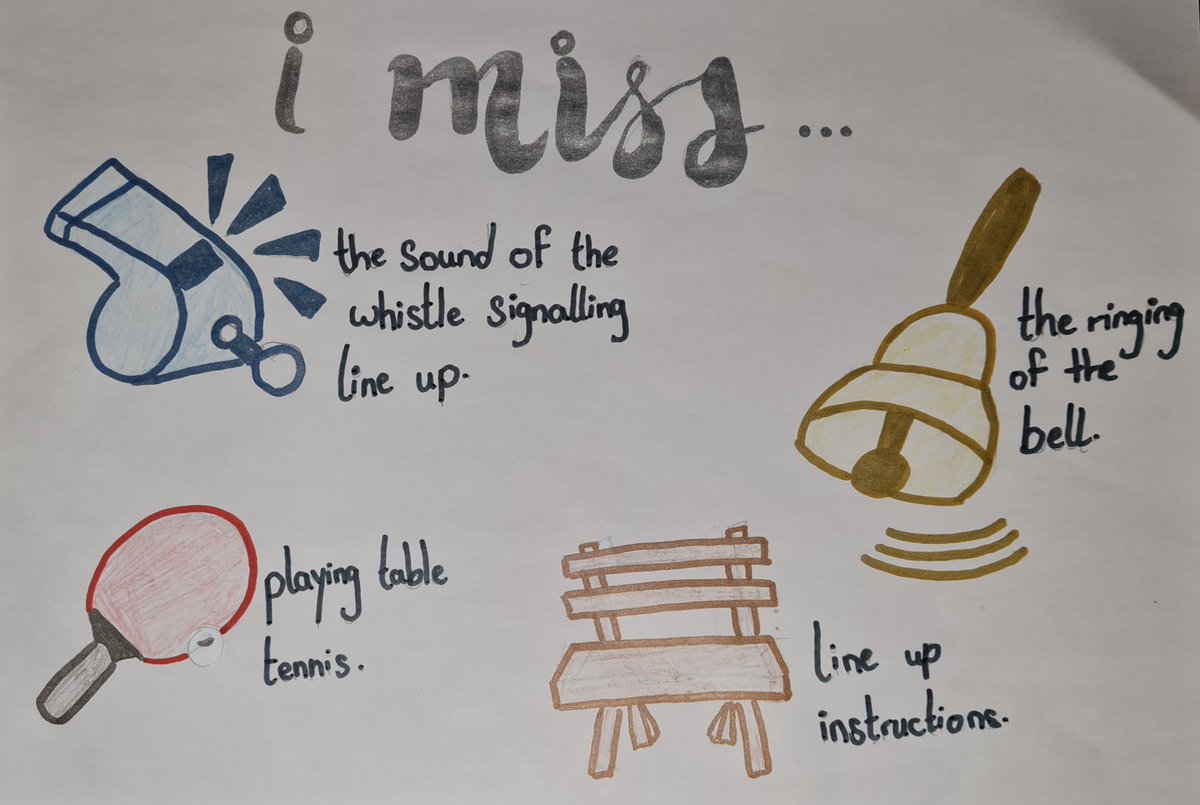 i miss...
the sound of the
whistle signalling
line up.
the ringing
of the
bell.
playing table
tennis.
line up
instructions.